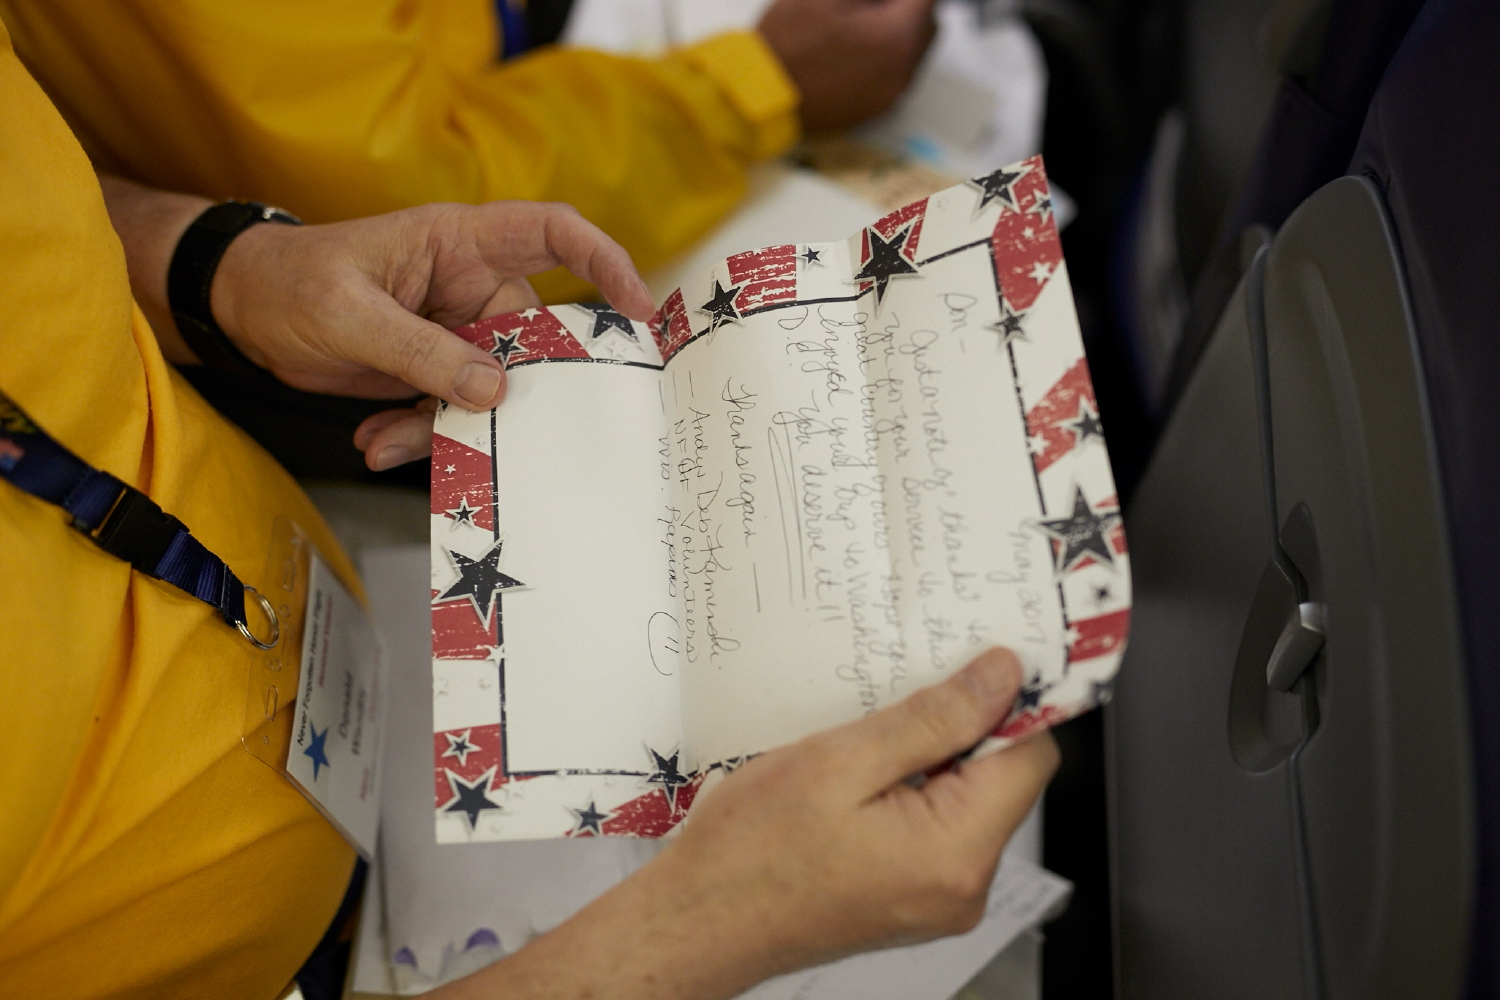 May 2017
Don –
Just a note of "thanks" to
you for your service to this
great country of ours. Hope you
enjoyed your trip to Washington
D.C. you deserve it!!
Thanks again —
– Andy & Deb Kamenski
NFHF Volunteers
Never Forgotten Honor Flight
Donald